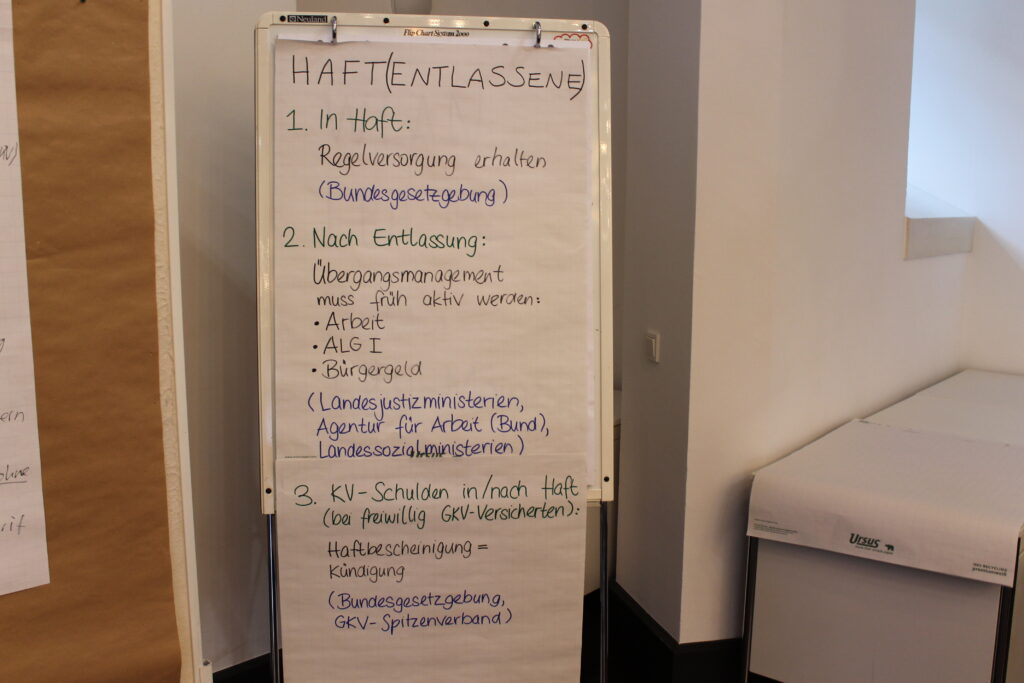 Neuland
Flip Chart System 2000
HAFT(ENTLASSENE)
1. In Haft:
Regelversorgung erhalten
(Bundesgesetzgebung)
2. Nach Entlassung:
Übergangsmanagement
muss früh aktiv werden:
• Arbeit
• ALG I
• Bürgergeld
(Landesjustizministerien,
Agentur für Arbeit (Bund),
Landessozialministerien)
3. KV-Schulden in/nach Haft
(bei freiwillig GKV-Versicherten):
Haftbescheinigung =
Kündigung
(Bundesgesetzgebung,
GKV-Spitzenverband)
Ursus